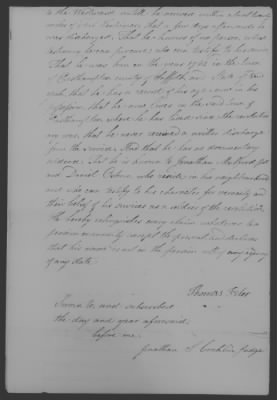 to the Westward untill he arrived within a short
miles of New Windsor, that a few days afterwards he
was discharged. That he knows of no person whose
testimony he can procure who can testify to his service
That he was born in the year 1762 in the town
of Easthampton county of Suffolk and State of New
york that he has a record of his age now in his
possession that he now lives in the said town of
Easthampton where he has lived since the revolution
ary war, that he never received a written discharge
from the service. And that he has no documentary
evidence. That he is known to Jonathan
and Daniel Osborn who reside in his neighbourhood
and who can testify to his character for veracity and
their belief of his services as a soldier of the revolution.
He hereby relinquishes every claim whatever to a
pension or annuity except the present and declares
that his name is not on the pension roll of any agency
of any state.
Thomas
Sworn to and subscribed
the day and year aforesaid.
before me.
Jonathan S Conklin Judge